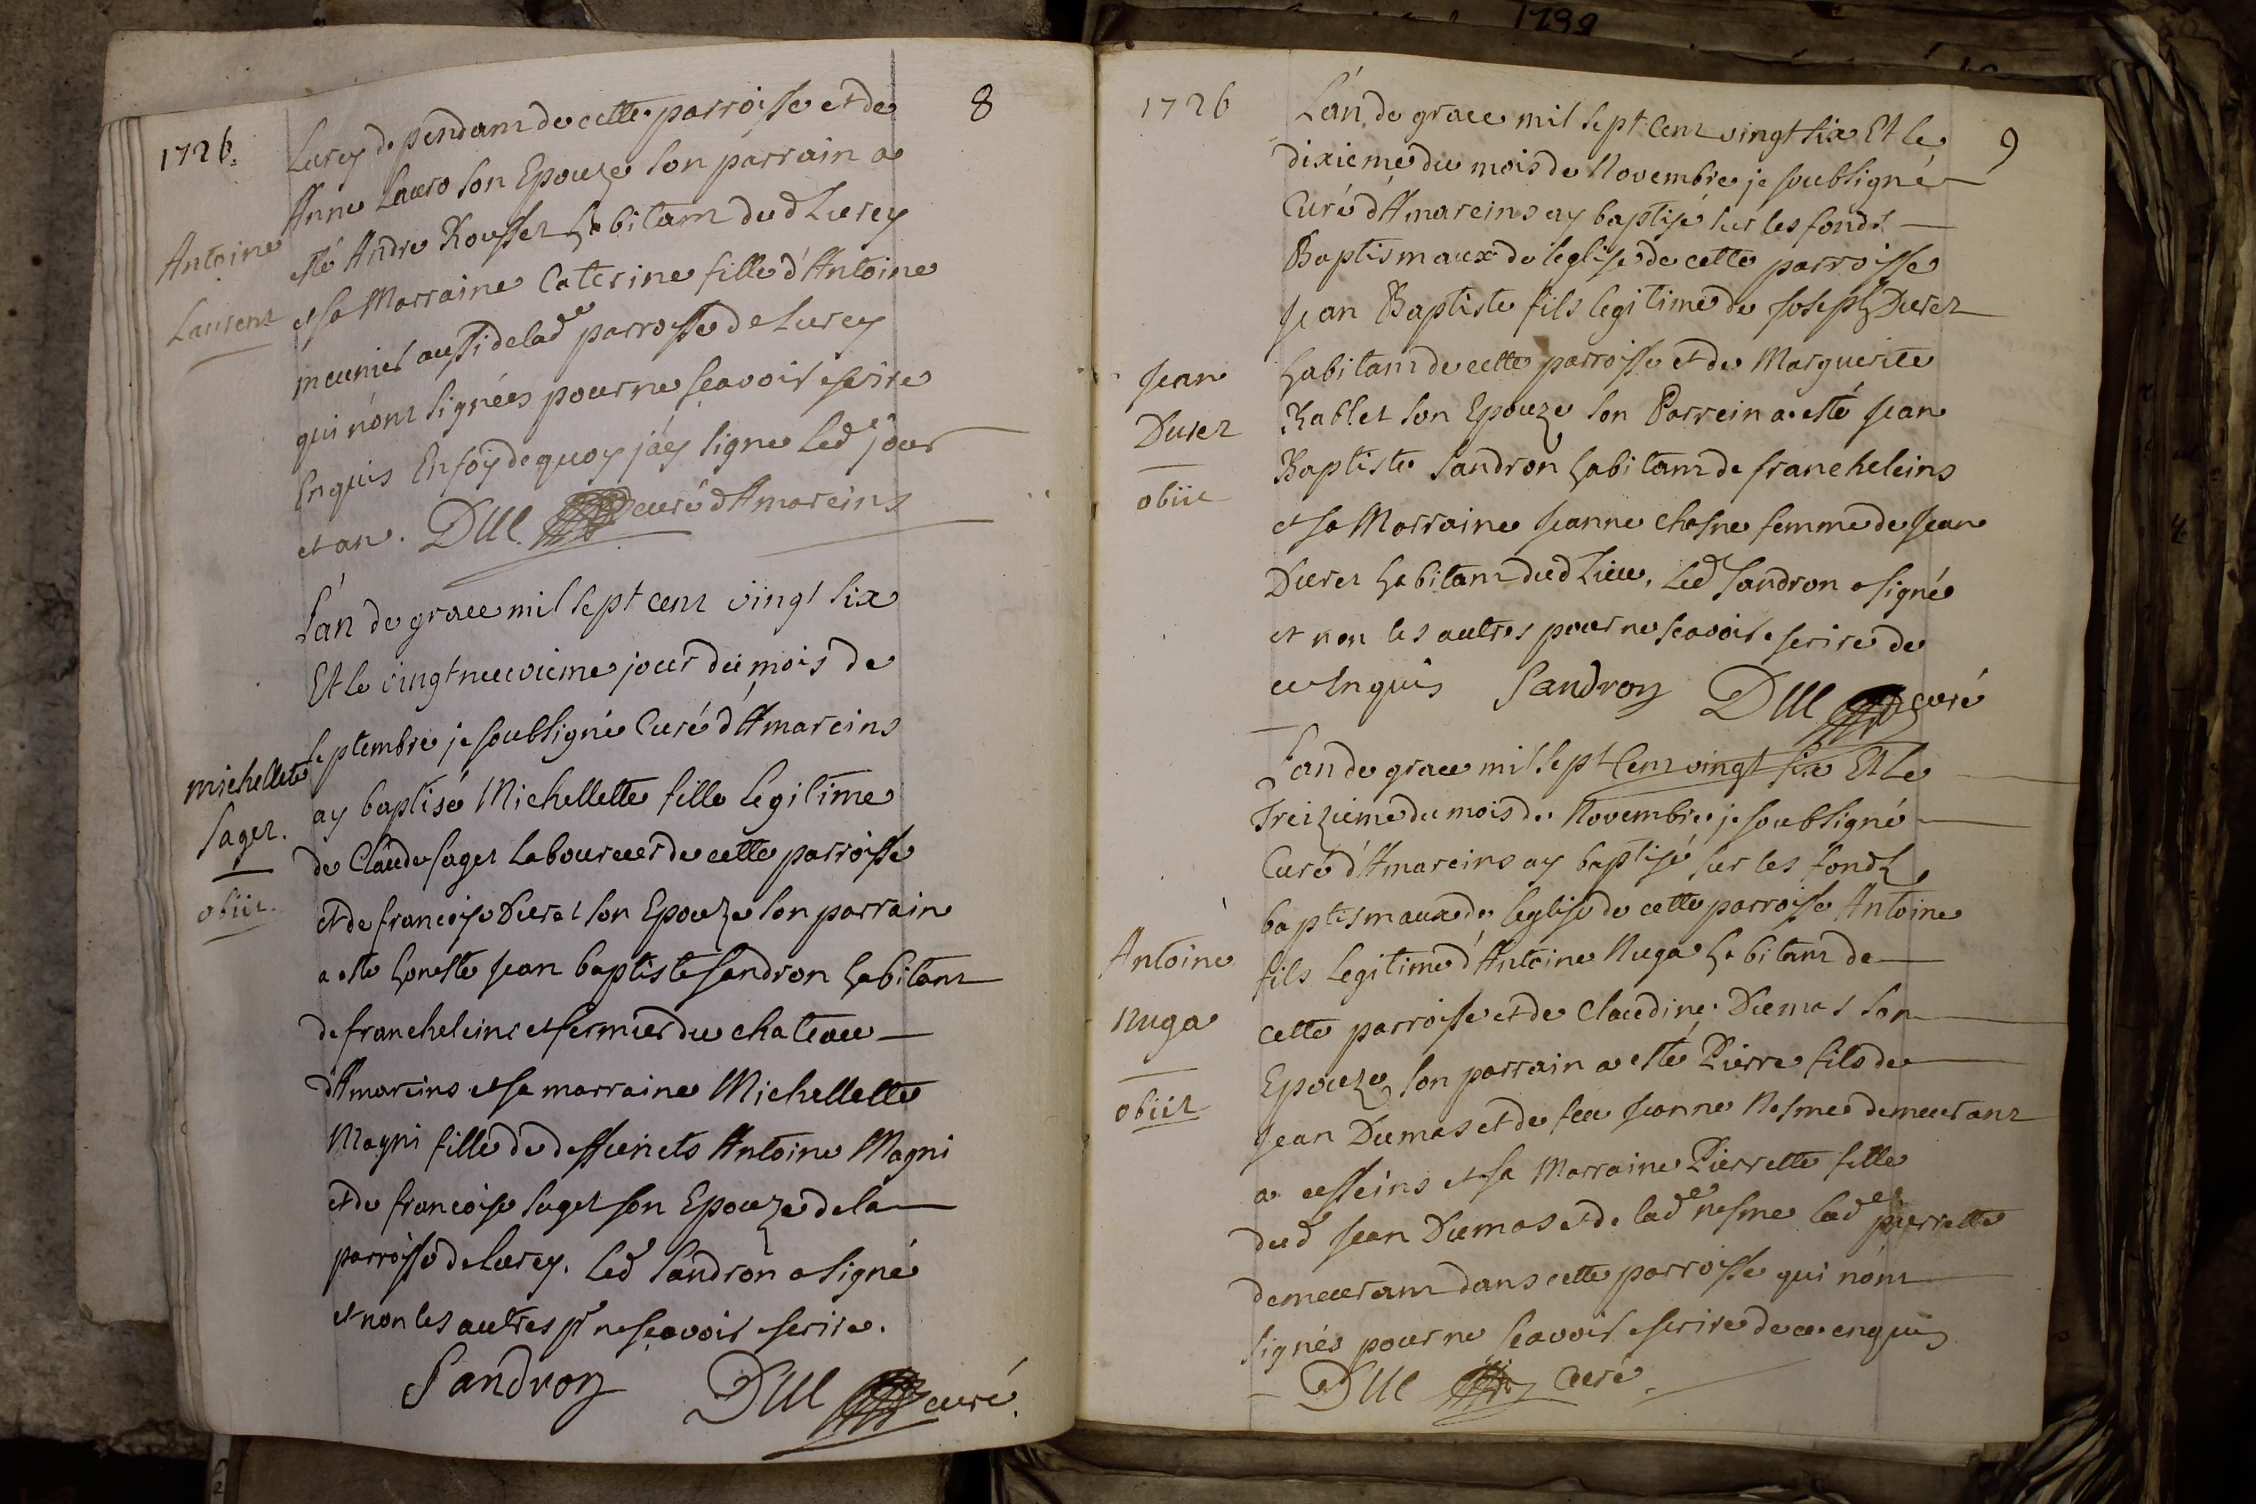 1739
1726.
8
Lurey dependam de cette parroisse et de
Anne Lauro son Epouze son parrain a
esté Andre Rousset habitam dud Lurey
et sa Marraine Caterine fille d'Antoine
meunier aussi de lad^e parroisse de Lurey
qui n'ont signées pour ne scavoir escrire
Enquis En foy de quoy j'ay signe led^t jour
et an. DUC curé d'Amareins
Antoine
Laurent
L'an de grace mil sept cent vingt six
Et le vingt neuvieme jour du mois de
septembre je soubsigné Curé d'Amareins
ay baptisé Michellette fille legitime
de Claude Saget Laboureur de cette parroisse
et de francoise Duret son Epouze son parrain
a esté honeste Jean baptiste Sandron habitant
de francheleins et fermier du chateau
d'Amareins et sa marraine Michellette
Magni fille de deffuncts Antoine Magni
et de francoise Saget son Epouze de la
parroisse de Lurey. Led Sandron a signé
et non les autres p^r ne scavoir escrire.
Sandron DUC curé.
michellette
Saget.
obiit.
1726
9
L'an de grace mil sept cent vingt six Et le
dixieme du mois de Novembre je soubsigné
Curé d'Amareins ay baptisé sur les fonds
Baptismaux de l'eglise de cette parroisse
Jean Baptiste fils legitime de Joseph Duret
habitant de cette parroisse et de Marguerite
Rablet son Epouze son Parrein a esté Jean
Baptiste Sandron habitant de francheleins
et sa Marraine Jeanne Chasne femme de Jean
Duret habitant dud Lieu, Led Sandron a signé
et non les autres pour ne scavoir escrire de
ce Enquis Sandron DUC curé
Jean
Duret
obiit
L'an de grace mil sept Cent vingt six Et Le
Treizieme du mois de Novembre je soubsigné
Curé d'Amareins ay baptisé sur les fonds
baptismaux de leglise de cette parroisse Antoine
fils Legitime d'Antoine Nuga habitant de
cette parroisse et de Claudine Dumas son
Epouze son parrain a esté Pierre fils de
Jean Dumas et de feu Jeanne Nesme demeurant
a cesseins et sa Marraine Pierrette fille
dud Jean Dumas et de lad^e nesme lad^e pierrette
demeurant dans cette parroisse qui n'ont
signés pour ne scavoir escrire de ce enquis
DUC Curé.
Antoine
Nuga
obiit